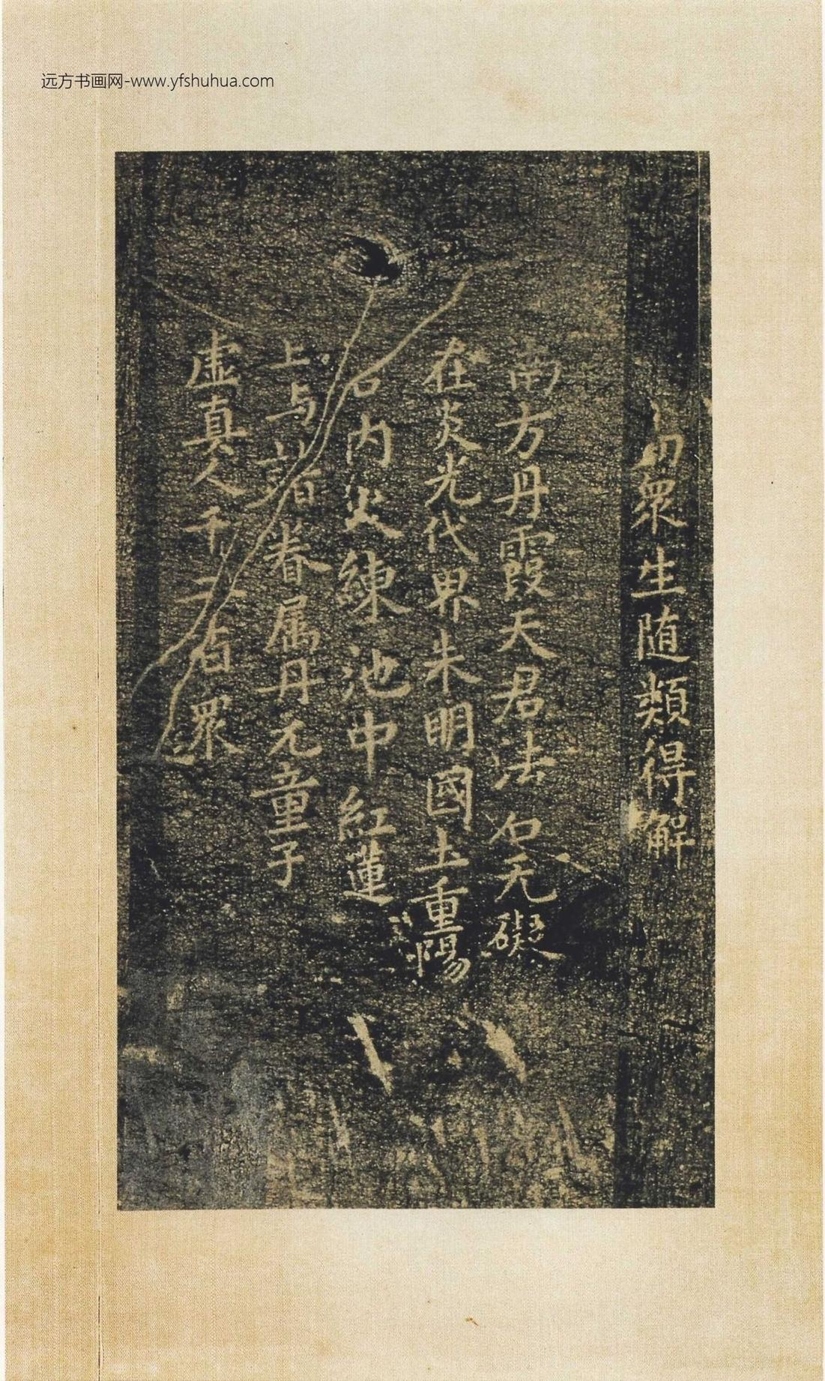 远方书画网-www.yfshuhua.com
切衆生随類得解
南方丹霞天君法名无礙
在炎光代界朱明國土重陽
内火練池中紅蓮
上与諸眷属丹元童子
虚真人千二百衆